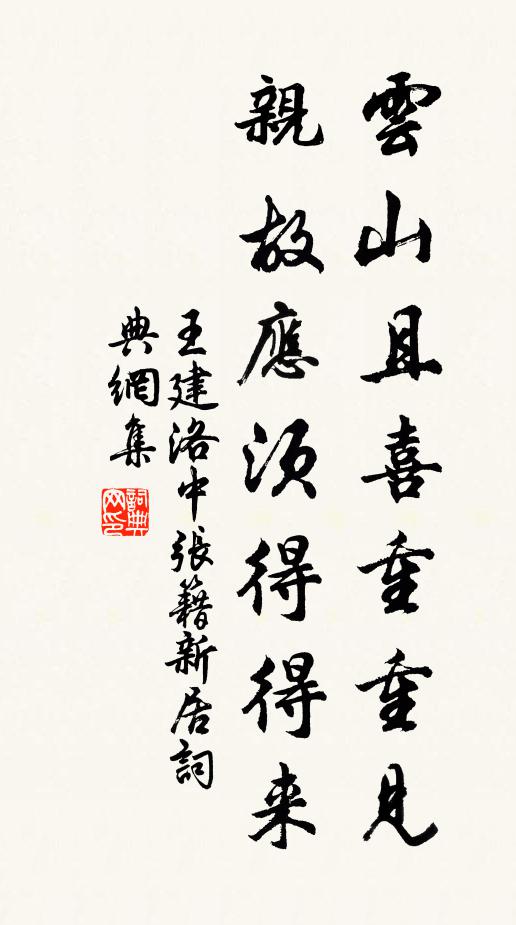 雲山且喜重重見
親故應須得得来
王建洛中張籍新居詞
典網集
詞典网印